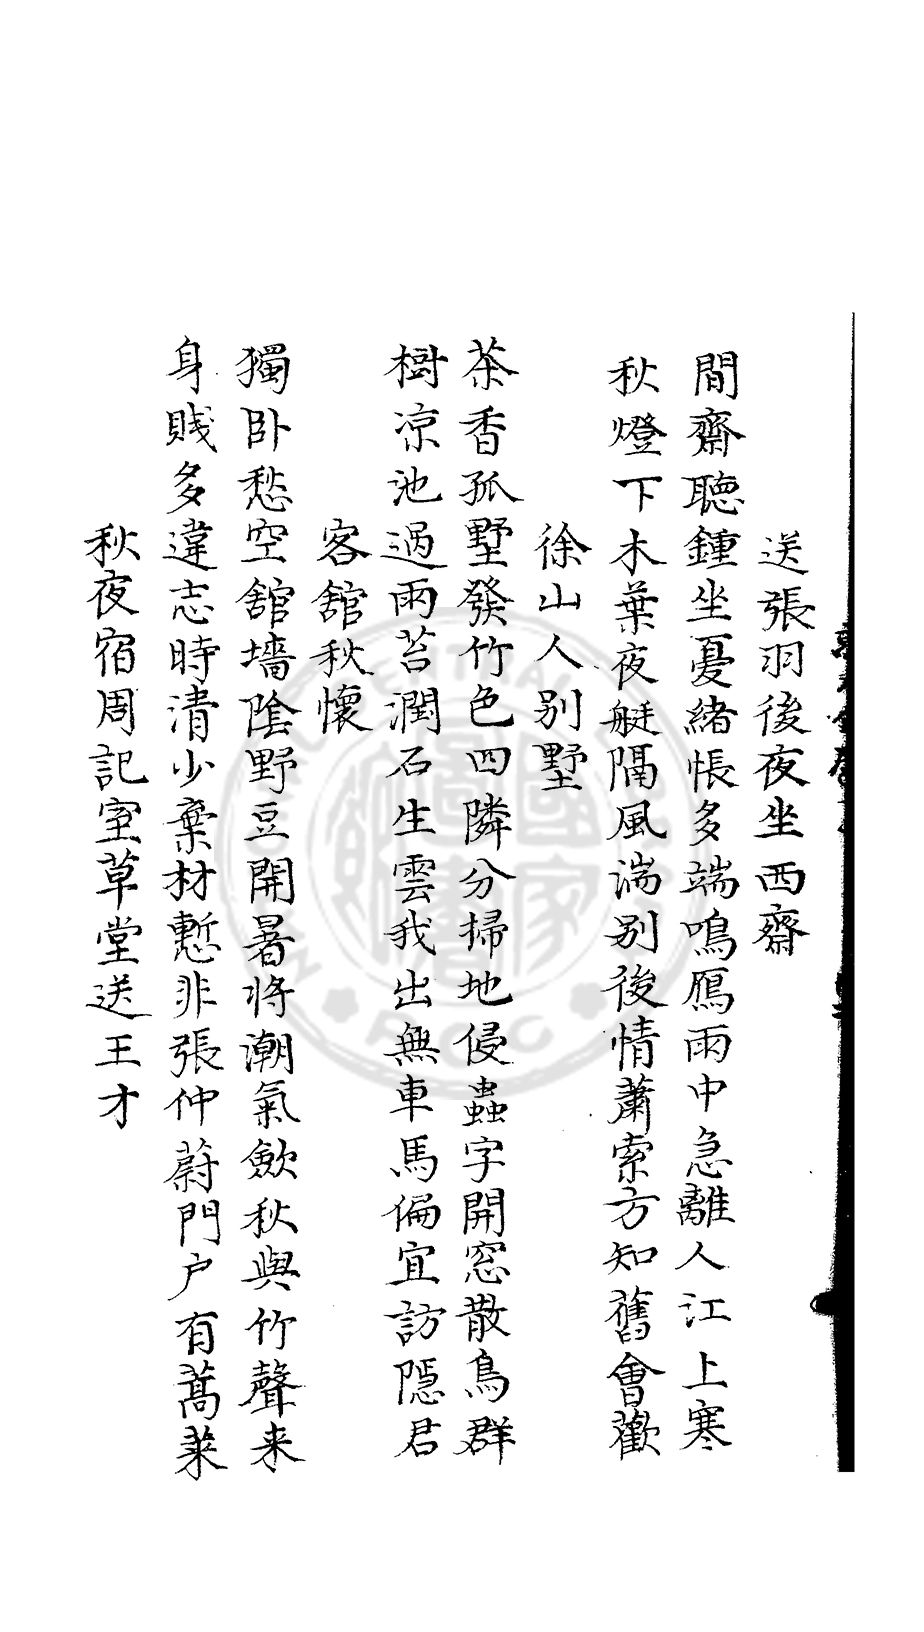 送張羽後夜坐西齋
閒齋聽鍾坐憂緒悵多端鳴鴈雨中急離人江上寒
秋燈下木葉夜艇隔風湍别後情蕭索方知舊會歡
徐山人别墅
茶香孤墅發竹色四隣分掃地侵蟲字開窓散鳥群
樹凉池過雨苔潤石生雲我出無車馬偏宜訪隠君
客舘秋懷
獨卧愁空舘墻陰野豆開暑将潮氣歛秋與竹聲来
身賤多違志時清少棄材慙非張仲蔚門户有蒿莱
秋夜宿周記室草堂送王才